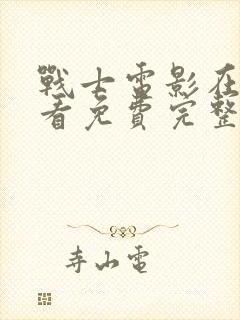 戰士電影在
看免費完整
寺山電